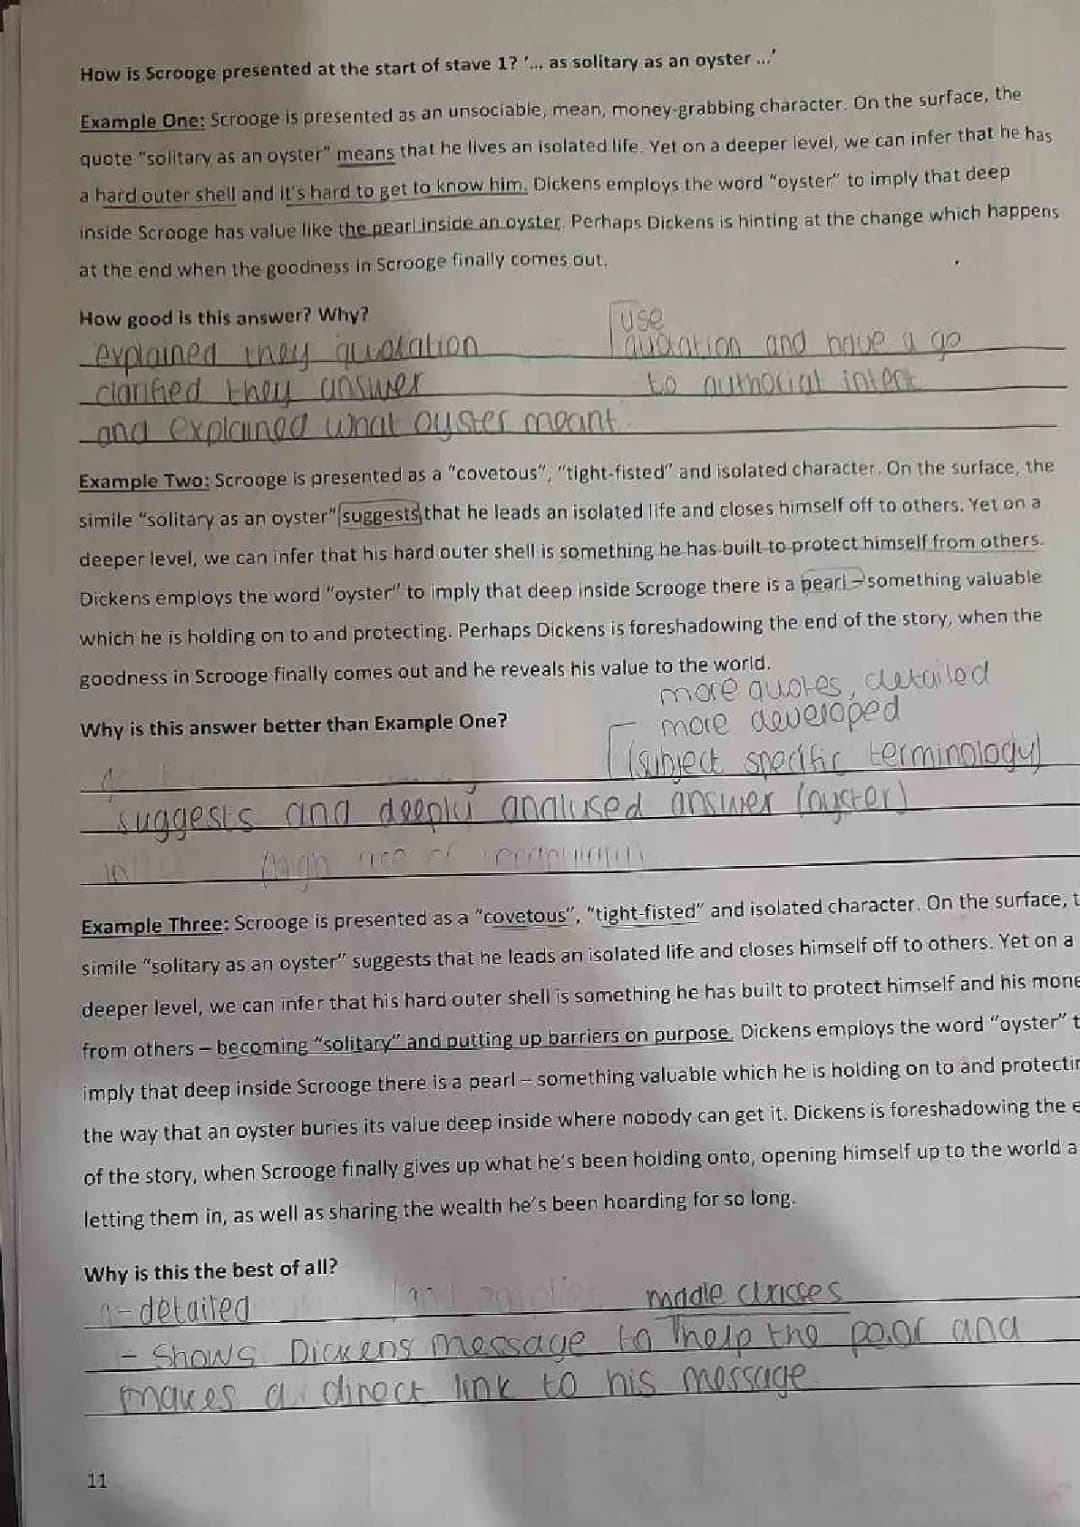 How is Scrooge presented at the start of stave 1? '... as solitary as an oyster ...'
Example One: Scrooge is presented as an unsociable, mean, money-grabbing character. On the surface, the
quote "solitary as an oyster" means that he lives an isolated life. Yet on a deeper level, we can infer that he has
a hard outer shell and it's hard to get to know him. Dickens employs the word "oyster" to imply that deep
inside Scrooge has value like the pearl inside an oyster. Perhaps Dickens is hinting at the change which happens
at the end when the goodness in Scrooge finally comes out.
How good is this answer? Why?
use
explained they quotation
quotation and have a go
clarified they answer
to authorial intent
and explained what oyster meant.
Example Two: Scrooge is presented as a "covetous", "tight-fisted" and isolated character. On the surface, the
simile "solitary as an oyster" suggests that he leads an isolated life and closes himself off to others. Yet on a
deeper level, we can infer that his hard outer shell is something he has built to protect himself from others.
Dickens employs the word "oyster" to imply that deep inside Scrooge there is a pearl – something valuable
which he is holding on to and protecting. Perhaps Dickens is foreshadowing the end of the story, when the
goodness in Scrooge finally comes out and he reveals his value to the world.
more quotes, detailed
Why is this answer better than Example One?
more developed
(subject specific terminology)
suggests and deeply analused answer (oyster)
(high use of
Example Three: Scrooge is presented as a "covetous", "tight-fisted" and isolated character. On the surface, t
simile "solitary as an oyster" suggests that he leads an isolated life and closes himself off to others. Yet on a
deeper level, we can infer that his hard outer shell is something he has built to protect himself and his mone
from others – becoming "solitary" and putting up barriers on purpose. Dickens employs the word "oyster" t
imply that deep inside Scrooge there is a pearl – something valuable which he is holding on to and protectin
the way that an oyster buries its value deep inside where nobody can get it. Dickens is foreshadowing the e
of the story, when Scrooge finally gives up what he's been holding onto, opening himself up to the world a
letting them in, as well as sharing the wealth he's been hoarding for so long.
Why is this the best of all?
- detailed
middle classes
- Shows Dickens message to help the poor and
makes a direct link to his message.
11